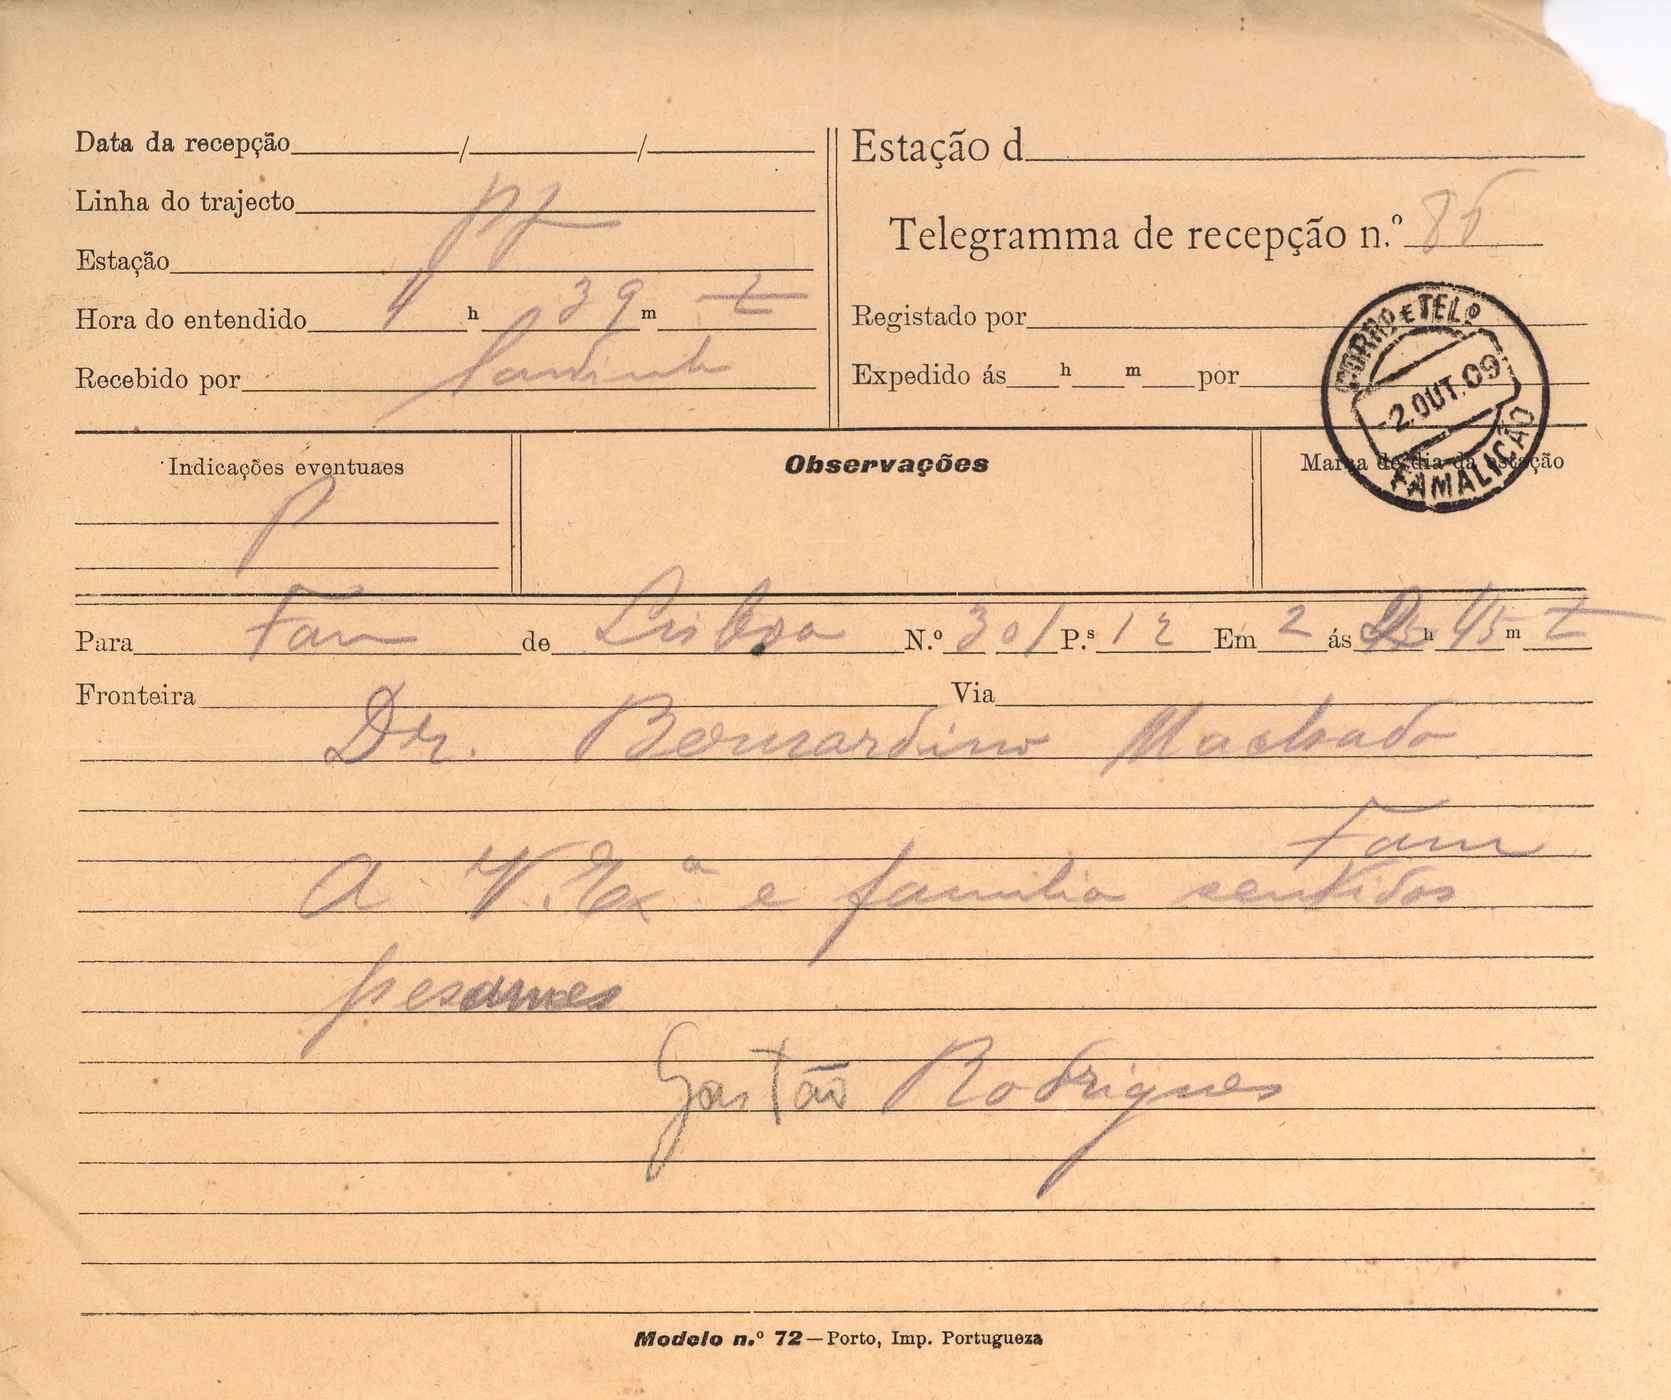 Data da recepção / /
Linha do trajecto
Estação
Hora do entendido 4 h 39 m t
Recebido por
Estação d
Telegramma de recepção n.º 86
Registado por
Expedido ás h m por
CORRO E TELO
-2.OUT.09
FAMALICÃO
Indicações eventuaes
P
Observações
Marca do dia da estação
Para Fam de Lisboa N.º 301 P.s 12 Em 2 ás h 45 m t
Fronteira Via
Dr. Bernardino Machado
Fam
A V. Exª e familia sentidos
pesames
Gastão Rodrigues
Modelo n.º 72—Porto, Imp. Portugueza